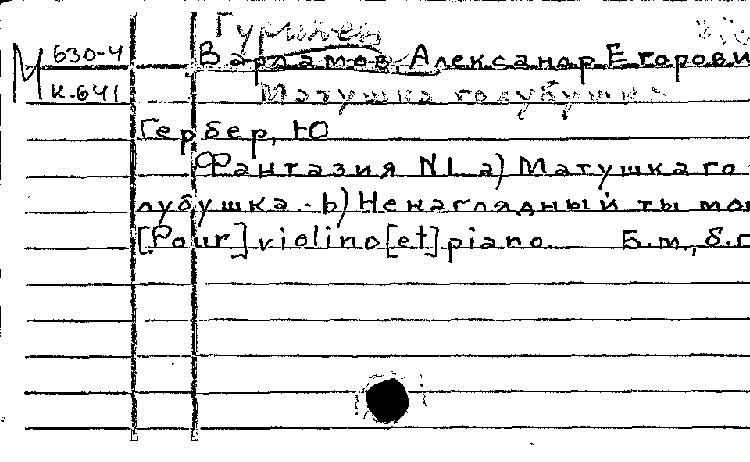 Гурилев
М 630-4
К.641
Варламов, Александр Егорови
Матушка голубушка
Гербер, Ю
Фантазия N1 а) Матушка го
лубушка.- b) Ненаглядный ты мой
[Pour] violino [et] piano Б.м., б.г